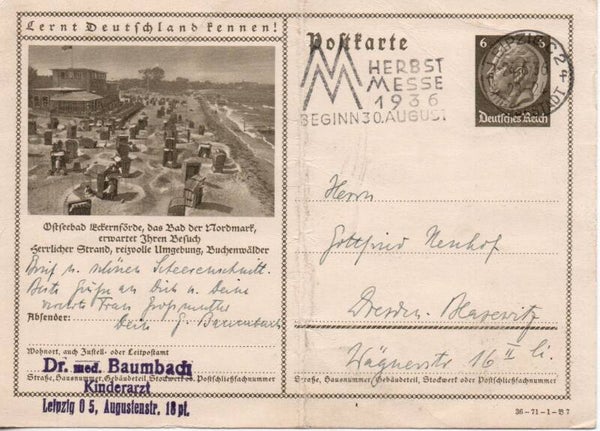 Lernt Deutschland kennen!
Ostseebad Eckernförde, das Bad der Nordmark,
erwartet Ihren Besuch
Herrlicher Strand, reizvolle Umgebung, Buchenwälder
Brief u. schönen Scheerenschnitt.
Beste Grüße an Dich u. Deine
Frau Großmutter
Absender:
Dein G. Baumbach
Wohnort, auch Zustell- oder Leitpostamt
Dr. med. Baumbach
Kinderarzt
Leipzig O 5, Augustenstr. 18 pt.
Straße, Hausnummer, Gebäudeteil, Stockwerk od. Postschließfachnummer
Postkarte
HERBST
MESSE
1936
BEGINN 30. AUGUST
LEIPZIG C 2
6 6
Deutsches Reich
Herrn
Gottfried Neuhof
Dresden-Blasewitz
Wägnerstr 16 II li.
Straße, Hausnummer, Gebäudeteil, Stockwerk oder Postschließfachnummer
36-71-1-B7